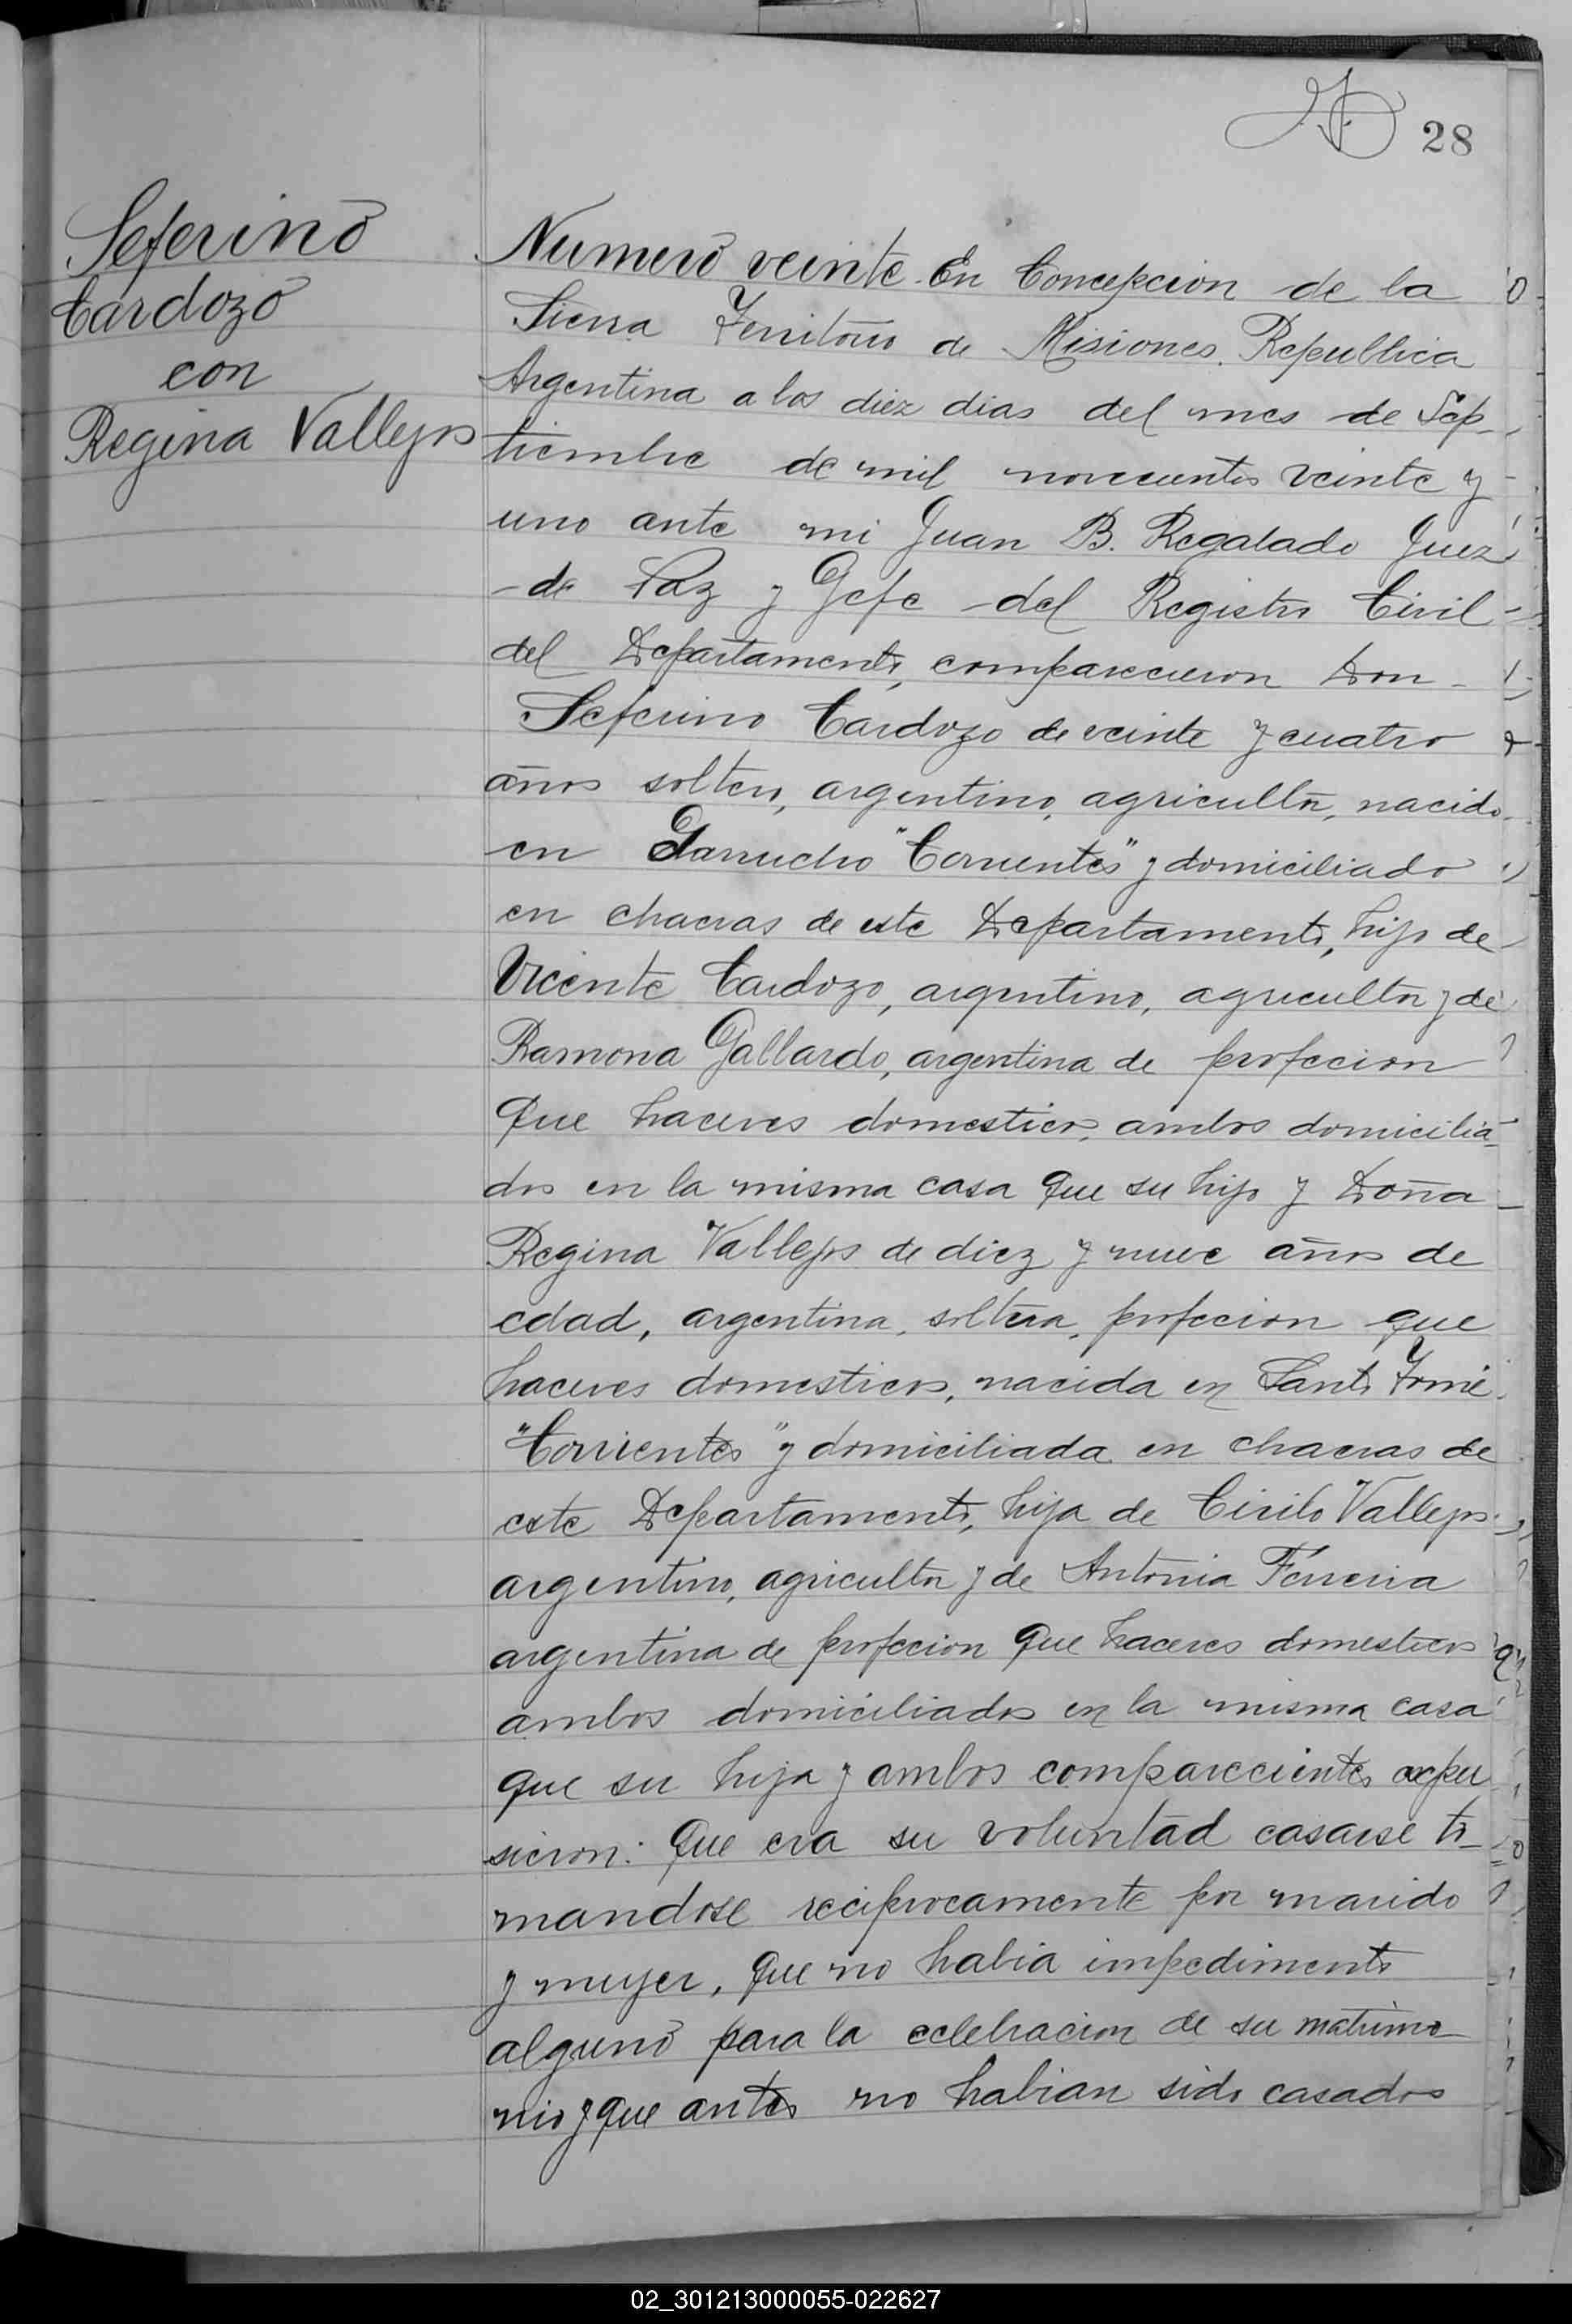 28
Seferino
Cardozo
con
Regina Vallejos
Numero veinte. En Concepcion de la
Sierra Territorio de Misiones. Republica
Argentina a los diez dias del mes de Sep-
tiembre de mil novecientos veinte y
uno ante mi Juan B. Regalado Juez
de Paz y Gefe del Registro Civil
del Departamento, comparecieron Don
Seferino Cardozo de veinte y cuatro
años soltero, argentino, agricultor, nacido
en Garruchos "Corrientes" y domiciliado
en chacras de este Departamento, hijo de
Vicente Cardozo, argentino, agricultor y de
Ramona Gallardo, argentina de profecion
que haceres domesticos, ambos domicilia-
dos en la misma casa que su hijo y Doña
Regina Vallejos de diez y nueve años de
edad, argentina, soltera, profecion que
haceres domesticos, nacida en Santo Tomé
"Corrientes" y domiciliada en chacras de
este Departamento, hija de Cirilo Vallejos
argentino, agricultor y de Antonia Ferreira
argentina de profecion que haceres domesticos
ambos domiciliados en la misma casa
que su hija y ambos comparecientes expu
sieron: Que era su voluntad casarse to-
mandose reciprocamente por marido
y mujer, que no habia impedimento
alguno para la celebracion de su matrimo-
nio y que antes no habian sido casados
02_301213000055-022627